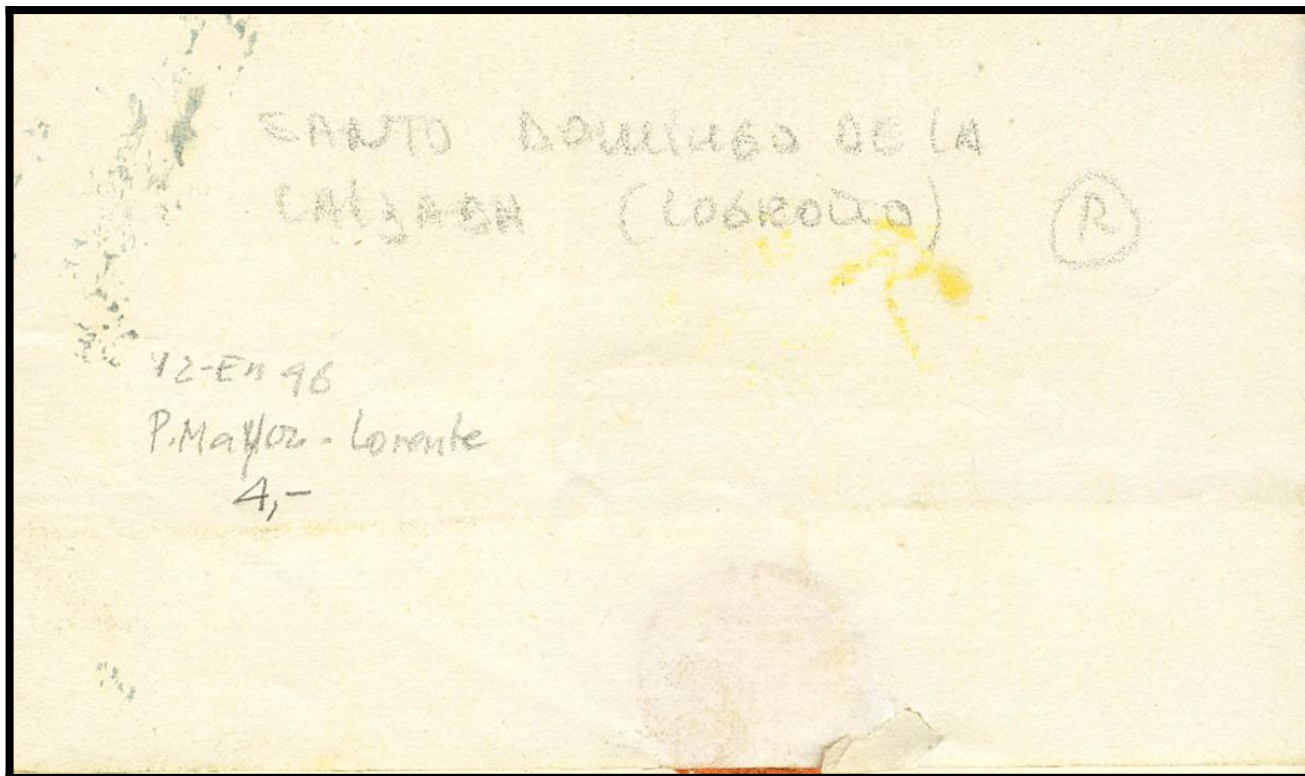 SANTO DOMINGO DE LA
CALZADA (LOGROÑO) R
12-En 96
P. Mayor - Lorente
4,-